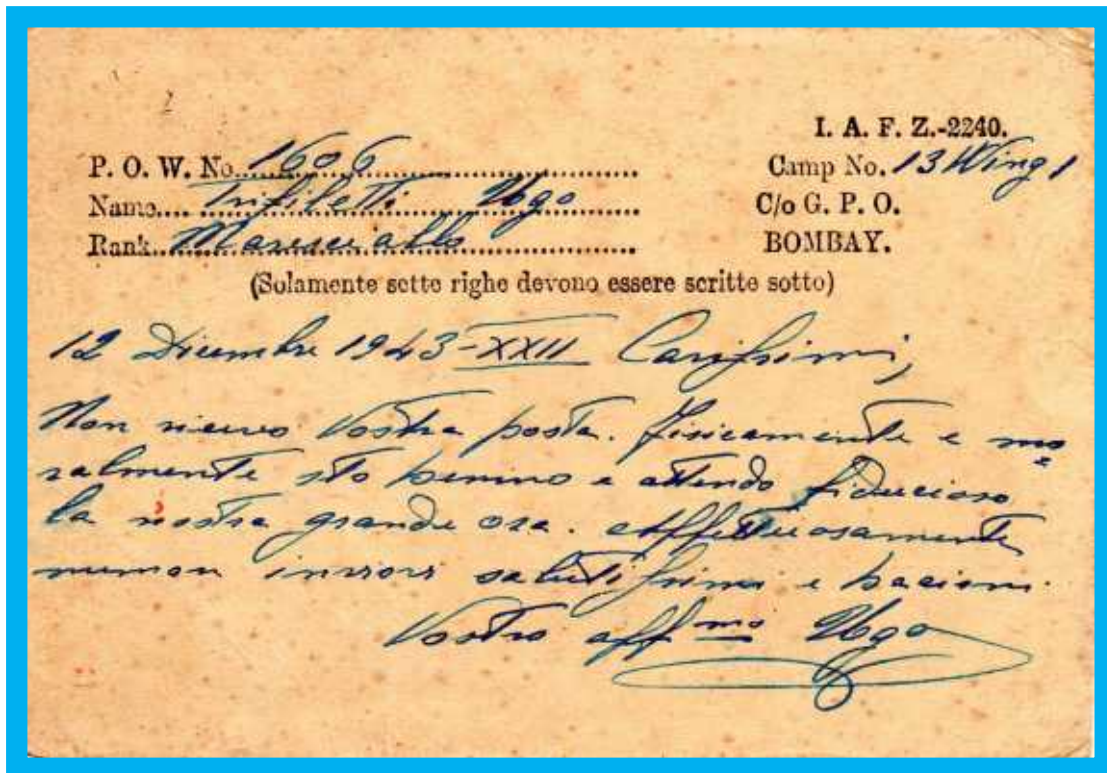 I. A. F. Z.-2240.
P. O. W. No. 1606 Camp No. 13 Wing 1
Name.... Trifiletti Ugo C/o G. P. O.
Rank... Maresciallo BOMBAY.
(Solamente sette righe devono essere scritte sotto)
12 Dicembre 1943-XXII Carissimi,
Non ricevo Vostra posta. Fisicamente e mo
ralmente sto benino e attendo fiducioso
la nostra grande ora. Affettuosamente
inviovi salutissimi e bacioni.
Vostro aff mo Ugo